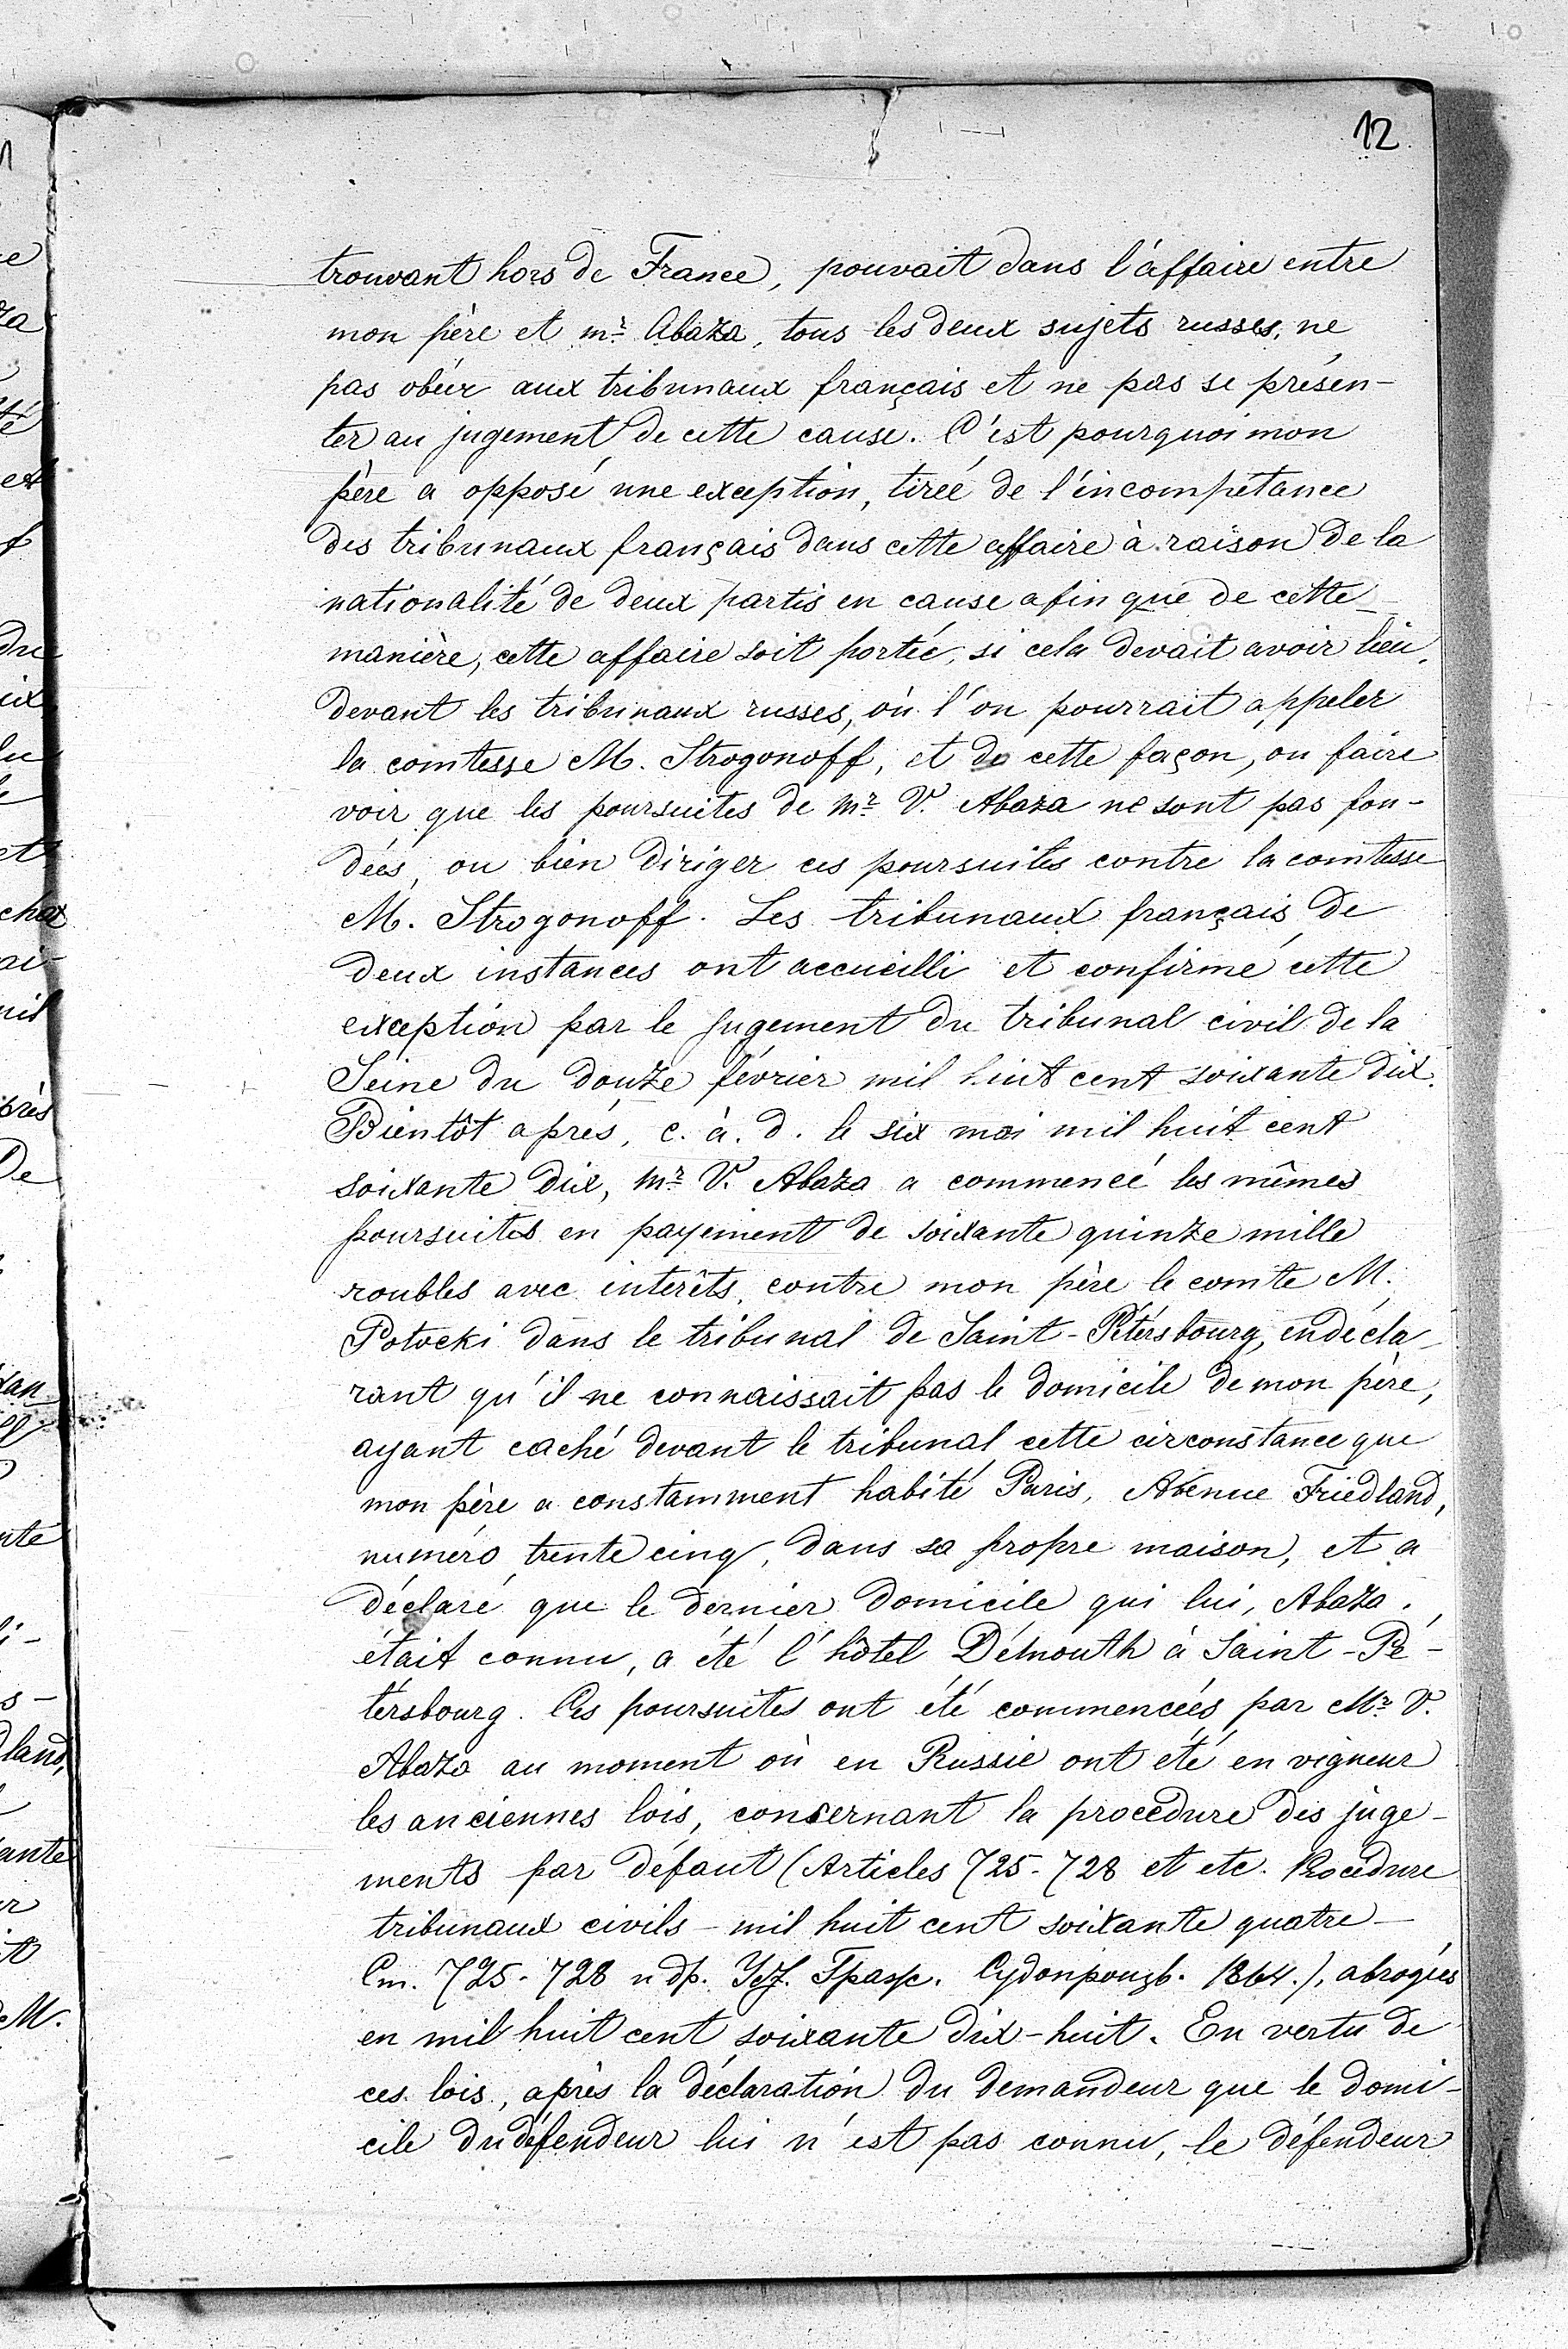 12
trouvant hors de France, pouvait dans l'affaire entre
mon père et mr. Abaza, tous les deux sujets russes, ne
pas obéir aux tribunaux français et ne pas se présen-
ter au jugement de cette cause. C'est pourquoi mon
père a opposé une exception, tirée de l'incompétance
des tribunaux français dans cette affaire à raison de la
nationalité de deux partis en cause afin que de cette
manière, cette affaire soit portée, si cela devait avoir lieu,
devant les tribunaux russes, où l'on pourrait appeler
la comtesse M. Strogonoff, et de cette façon, ou faire
voir que les poursuites de mr. V. Abaza ne sont pas fon-
dées, ou bien diriger ces poursuites contre la comtesse
M. Strogonoff. Les tribunaux français de
deux instances ont accueilli et confirmé cette
exception par le jugement du tribunal civil de la
Seine du douze février mil huit cent soixante dix.
Bientôt après, c. à. d. le six mai mil huit cent
soixante dix, mr. V. Abaza a commencé les mêmes
poursuites en payement de soixante quinze mille
roubles avec intérêts, contre mon père le comte M.
Potocki dans le tribunal de Saint-Pétersbourg, en décla-
rant qu'il ne connaissait pas le domicile de mon père,
ayant caché devant le tribunal cette circonstance que
mon père a constamment habité Paris, Avenue Friedland,
numéro trente cinq, dans sa propre maison, et a
déclaré que le dernier domicile qui lui, Abaza,
était connu, a été l'hôtel Démouth à Saint-Pé-
tersbourg. Ces poursuites ont été commencées par Mr. V.
Abaza au moment où en Russie ont été en vigueur
les anciennes lois, consernant la procédure des juge-
ments par défaut (Articles 725-728 et etc. Procédure
tribunaux civils - mil huit cent soixante quatre -
Ст. 725-728 и др. Уст. Гражс. Судопроизв. 1864.), abrogées
en mil huit cent soixante dix-huit. En vertu de
ces lois, après la déclaration du demandeur que le domi-
cile du défendeur lui n'est pas connu, le défendeur